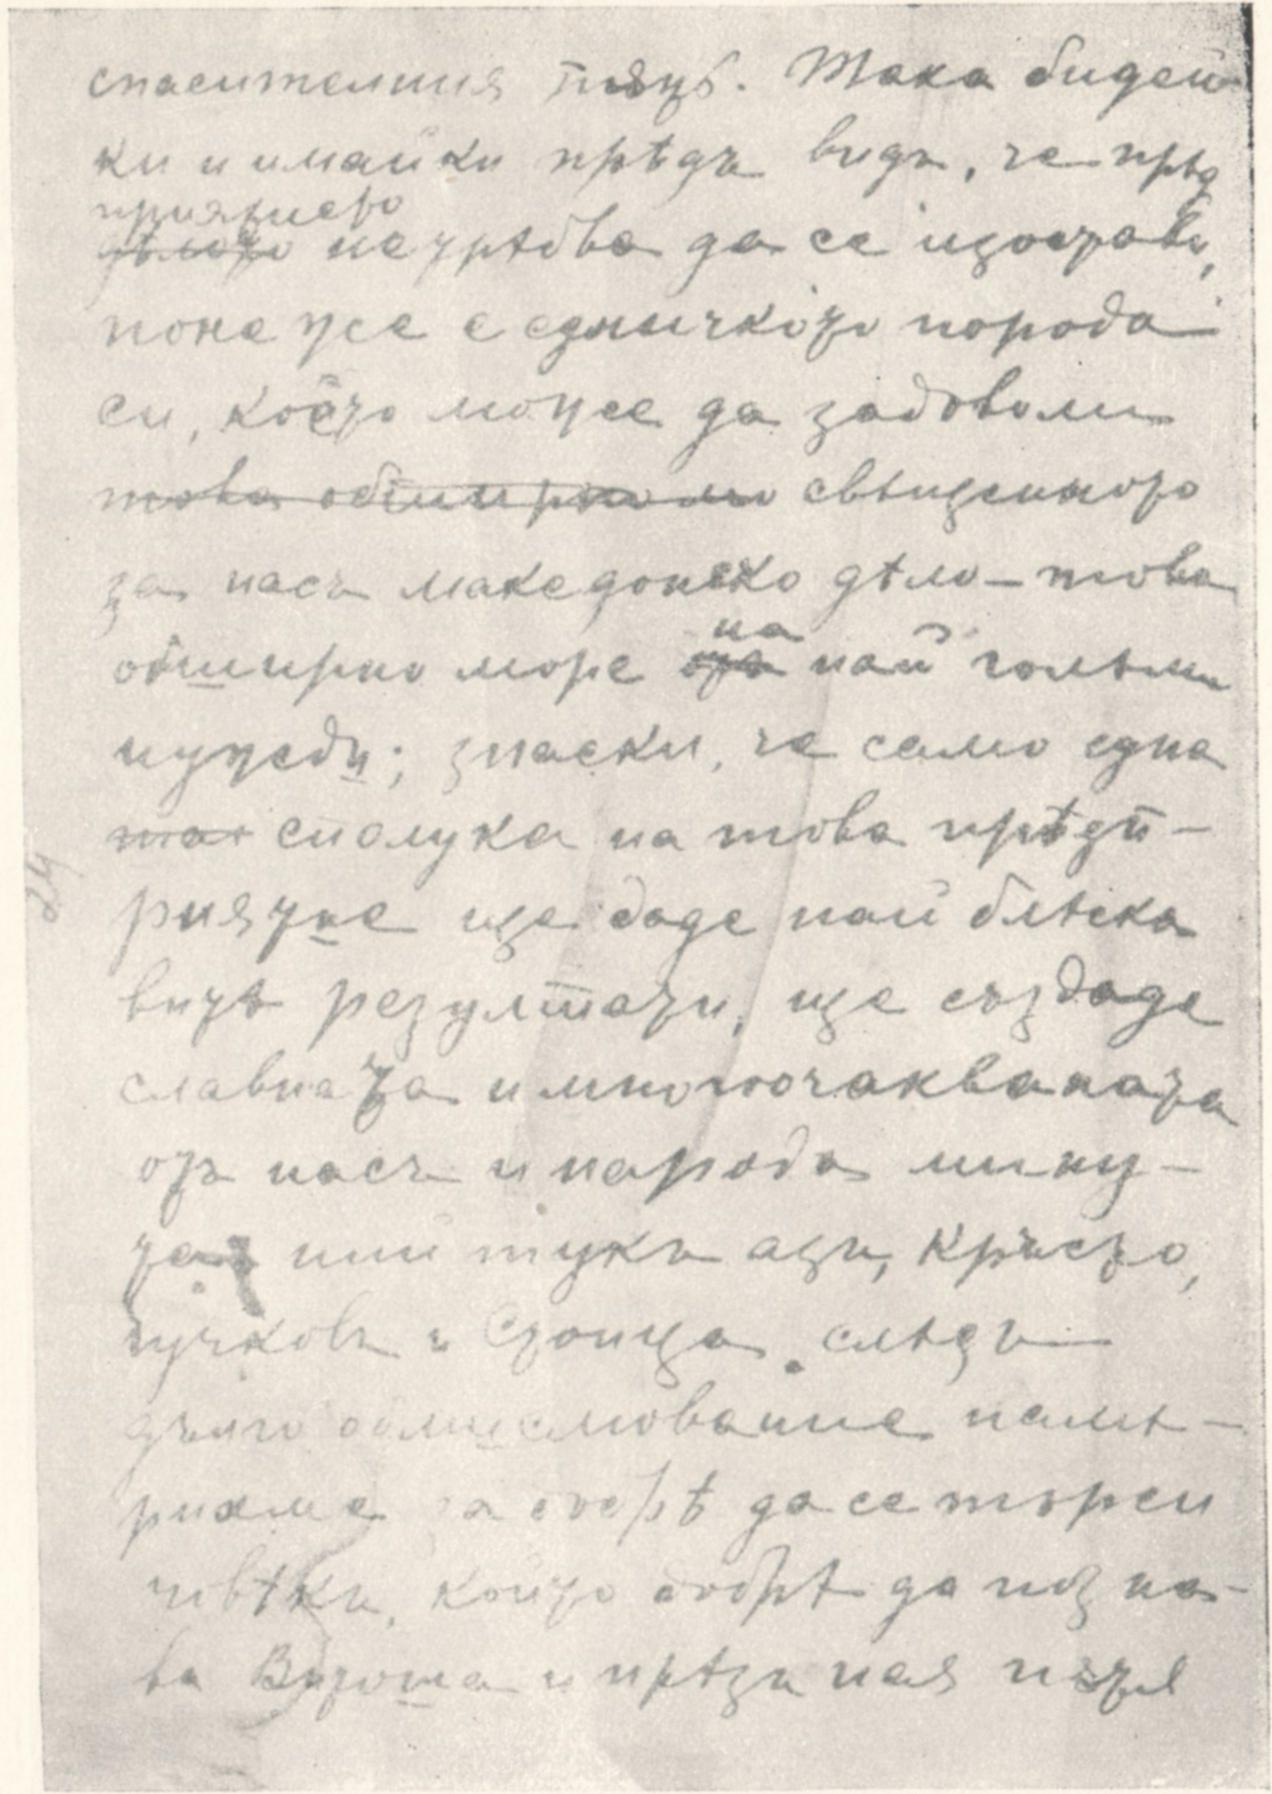 спасителния пѫть. Така бидей-
ки и имайки прѣдъ видъ, че прѣд
приятието
дѣлото не трѣбва да се изостави,
понеже е едничкото порода
си, което може да задоволи
това обширно мо свѣщенното
за насъ македонско дѣло — това
обширно море отъ на най голѣми
нужди; знаейки, че само една
та сполука на това прѣдп-
риятие ще даде най блѣска
витѣ резултати, ще създаде
славната и многоочакваната
отъ насъ и народа мину-
та, ний тукъ азъ, Кръсто,
Гучковъ и Стоица слѣдъ
дълго обмислювание намѣ-
рихме за добрѣ да се търси
човѣкъ, който добрѣ да позна-
ва Витоша и прѣзъ нея пѫтя